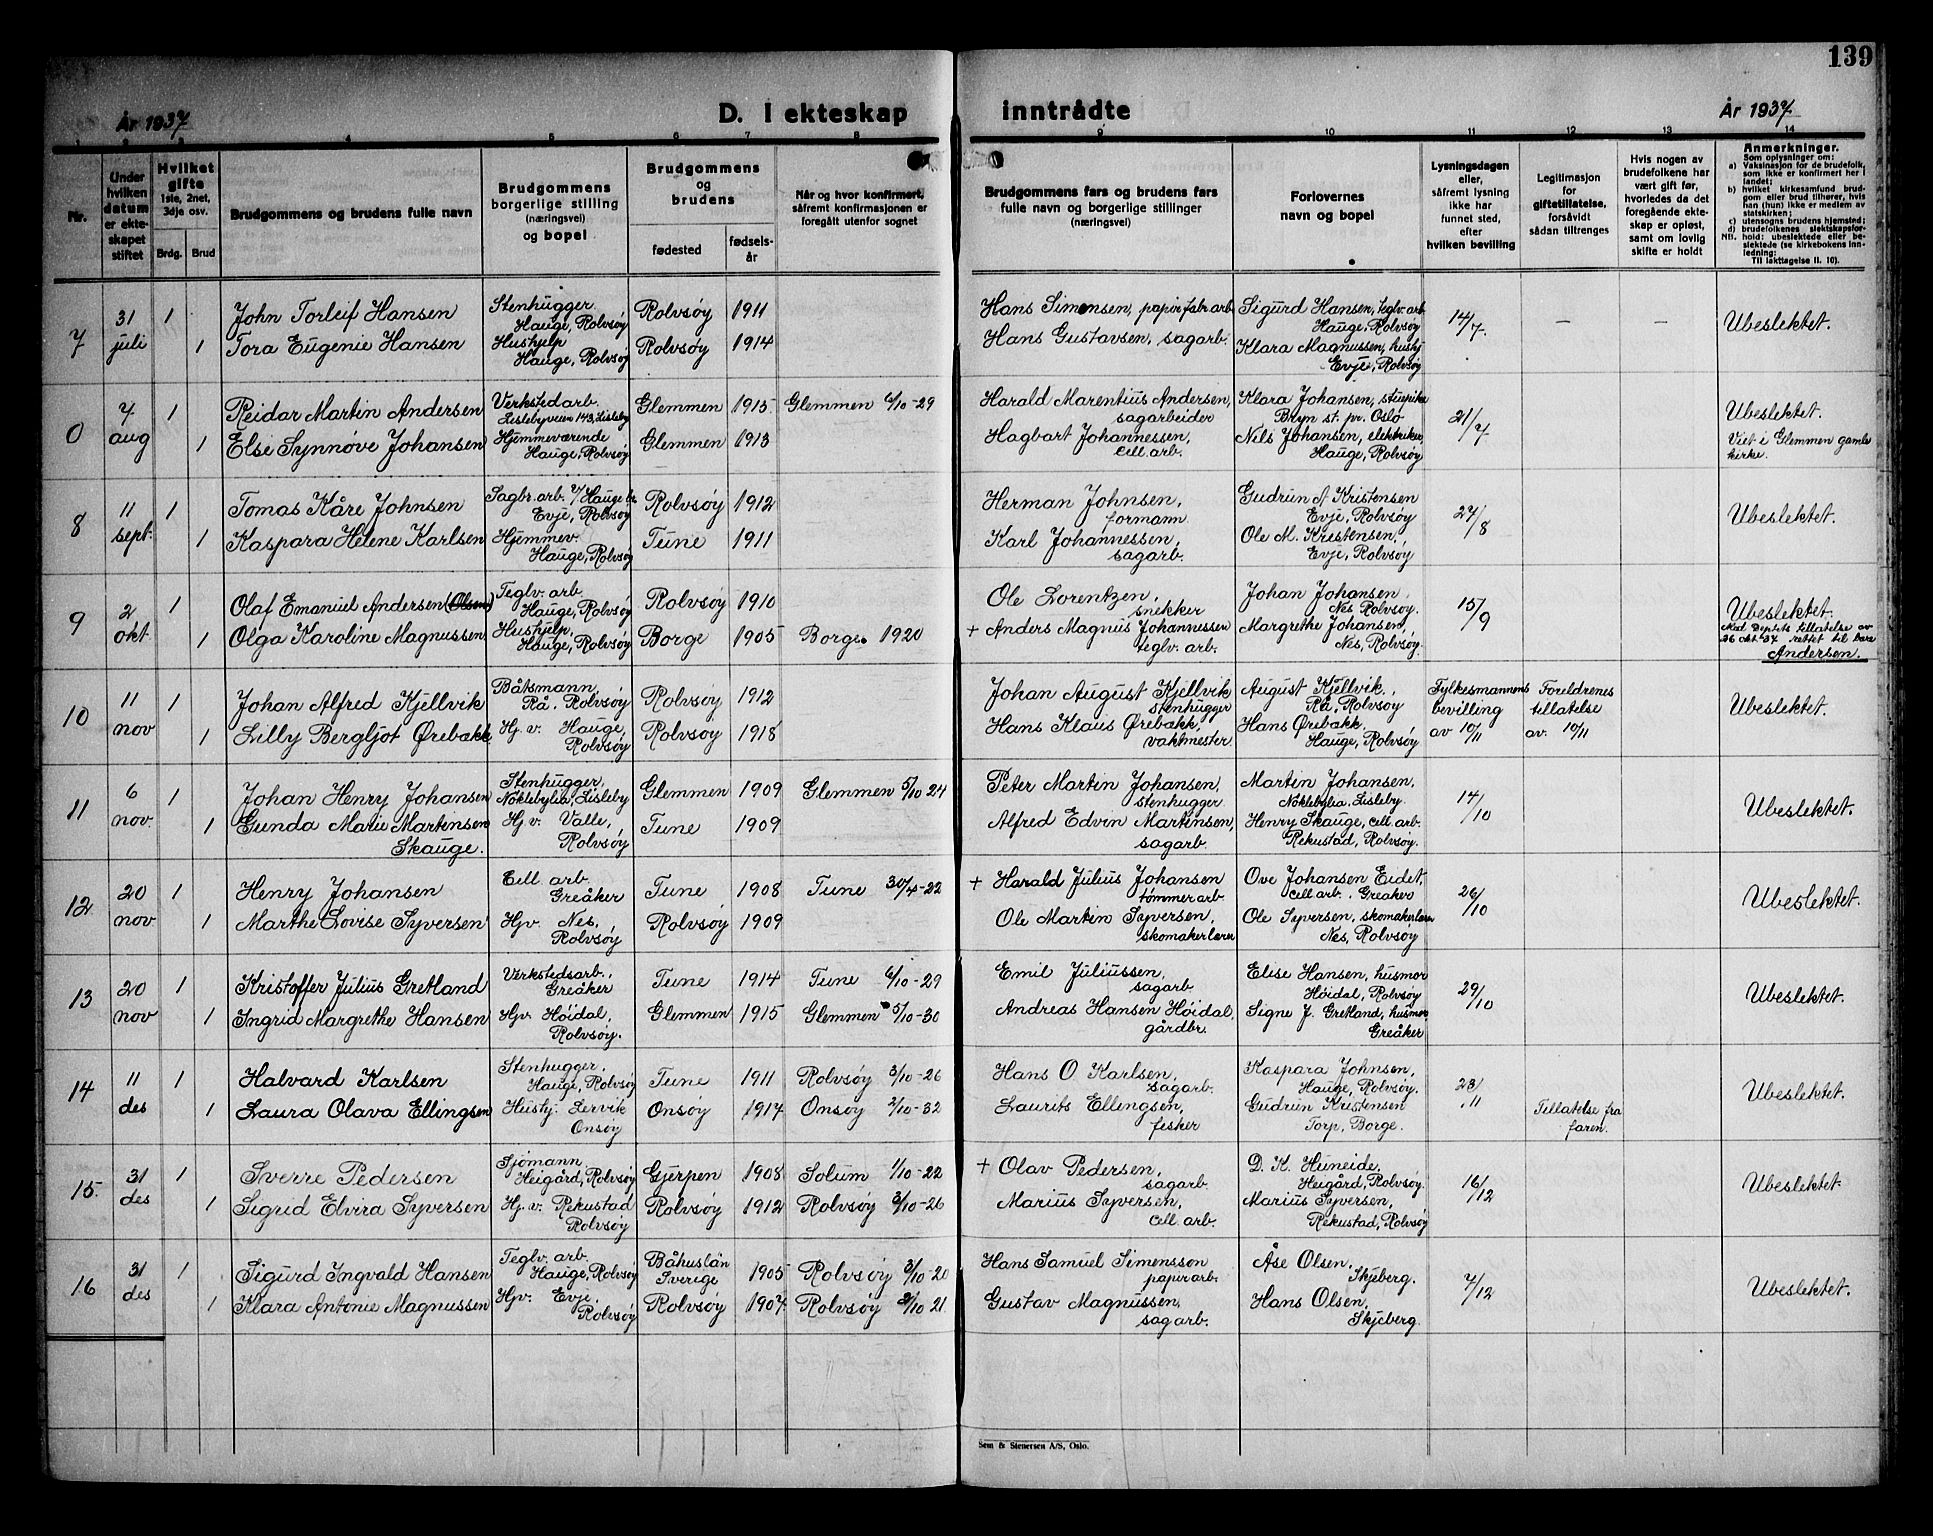 139
År 1937
D. I ekteskap
inntrådte
År 1937
1 2 3 4 5 6 7 8 9 10 11 12 13 14
Nr.
Under
hvilken
datum
er ekte-
skapet
stiftet
Hvilket
gifte
1ste, 2net,
3dje osv.
Brdg. Brud
Brudgommens og brudens fulle navn
Brudgommens
borgerlige stilling
(næringsvei)
og bopel
Brudgommens
og
brudens
fødested
fødsels-
år
Når og hvor konfirmert,
såfremt konfirmasjonen er
foregått utenfor sognet
Brudgommens fars og brudens fars
fulle navn og borgerlige stillinger
(næringsvei)
Forlovernes
navn og bopel
Lysningsdagen
eller,
såfremt lysning
ikke har
funnet sted,
efter
hvilken bevilling
Legitimasjon
for
giftetillatelse,
forsåvidt
sådan tiltrenges
Hvis nogen av
brudefolkene har
vært gift før,
hvorledes da det
foregående ekte-
skap er opløst,
samt om lovlig
skifte er holdt
Anmerkninger.
Som oplysninger om:
a) Vaksinasjon for de brudefolk,
som ikke er konfirmert her i
landet;
b) hvilket kirkesamfund brud-
gom eller brud tilhører, hvis
han (hun) ikke er medlem av
statskirken;
c) utensogns brudens hjemsted;
d) brudefolkenes slektskapsfor-
NB. hold: ubeslektede eller be-
slektede (se kirkebokens inn-
ledning:
Til iakttagelse II. 10).
7
31
juli
1
1
John Torleif Hansen
Tora Eugenie Hansen
Stenhugger
Hauge, Rolvsøy
Hushjelp
Hauge, Rolvsøy
Rolvsøy 1911
Rolvsøy 1914
Hans Simensen, papirfabr.arb.
Hans Gustavsen, sagarb.
Sigurd Hansen, teglv. arb
Hauge, Rolvsøy
Klara Magnussen, hushj
Evje, Rolvsøy
14/7
– –
Ubeslektet.
0
7
aug
1
1
Reidar Martin Andersen
Else Synnøve Johansen
Verkstedarb.
Lislebyveien 143, Lisleby
Hjemmeværende
Hauge, Rolvsøy
Glemmen 1915 Glemmen 6/10-29
Glemmen 1913
Harald Marentius Andersen,
sagarbeider
Hagbart Johannessen,
cell. arb.
Klara Johansen, stuepike
Bryn st. pr. Oslo
Nils Johansen, elektriker,
Hauge, Rolvsøy
21/7
Ubeslektet.
Viet i Glemmen gamle
kirke.
8
11
sept.
1
1
Tomas Kåre Johnsen
Kaspara Helene Karlsen
Sagbr. arb. v/ Hauge br.
Evje, Rolvsøy
Hjemmev.
Hauge, Rolvsøy
Rolvsøy 1912
Tune 1911
Herman Johnsen,
formann
Karl Johannessen,
sagarb.
Gudrun A Kristensen
Evje, Rolvsøy
Ole M. Kristensen,
Evje, Rolvsøy
27/8
Ubeslektet.
9
2
okt.
1
1
Olaf Emanuel Andersen (Olsen)
Olga Karoline Magnussen
Teglv. arb.
Hauge, Rolvsøy
Hushjelp,
Hauge, Rolvsøy
Rolvsøy 1910
Borge 1905 Borge 1920
Ole Lorentzen,
snekker
+ Anders Magnus Johannessen
teglv. arb.
Johan Johansen,
Nes Rolvsøy.
Margrethe Johansen,
Nes, Rolvsøy.
15/9
Ubeslektet.
Med Deptets tillatelse av
26 okt. 37 rettet til bare
Andersen.
10
11
nov
1
1
Johan Alfred Kjellvik
Lilly Bergljot Ørebakk
Båtsmann,
Rå, Rolvsøy
Hj. v. Hauge,
Rolvsøy
Rolvsøy 1912
Rolvsøy 1918
Johan August Kjellvik
stenhugger
Hans Klaus Ørebakk,
vaktmester
August Kjellvik,
Rå, Rolvsøy
Hans Ørebakk
Hauge, Rolvsøy
Fylkesmannens
bevilling
av 10/11
Foreldrenes
tillatelse
av. 10/11
Ubeslektet.
11
6
nov.
1
1
Johan Henry Johansen
Gunda Marie Martinsen
Skauge.
Stenhugger,
Noklebylia, Lisleby
Hj. v. Valle,
Rolvsøy
Glemmen 1909 Glemmen 5/10 24
Tune 1909
Peter Martin Johansen,
stenhugger
Alfred Edvin Martinsen,
sagarb.
Martin Johansen,
Noklebylia, Lisleby.
Henry Skauge, cell arb.
Rekustad, Rolvsøy.
14/10
Ubeslektet.
12
20
nov
1
1
Henry Johansen
Marthe Lovise Syversen
Cell. arb.
Greåker
Hjv. Nes,
Rolvsøy
Tune 1908 Tune 30/4-22
Rolvsøy 1909
+ Harald Julius Johansen
tømmerarb
Ole Martin Syversen,
skomakerlærer
Ove Johansen Eidet,
cell arb. Greåker
Ole Syversen, skomakerlærer
Nes, Rolvsøy
26/10
Ubeslektet.
13
20
nov
1
1
Kristoffer Julius Gretland
Ingrid Margrethe Hansen
Verkstedsarb.,
Greåker
Hjv. Höidal,
Rolvsøy.
Tune 1914 Tune 6/10-29
Glemmen 1915 Glemmen 5/10-30
Emil Juliussen,
sagarb
Andreas Hansen Höidal,
gårdbr.
Elise Hansen, husmor
Höidal, Rolvsøy
Signe J. Gretland, husmor
Greåker
29/10
Ubeslektet.
14
11
des
1
1
Halvard Karlsen
Laura Olava Ellingsen
Stenhugger,
Hauge, Rolvsøy
Hushj. Lervik
Onsøy
Tune 1911 Rolvsøy 3/10-26
Onsøy 1917 Onsøy 2/10-32
Hans O Karlsen,
sagarb.
Laurits Ellingsen,
fisker
Kaspara Johnsen,
Hauge, Rolvsøy.
Gudrun Kristensen
Torp, Borge.
23/11
Tillatelse fra
faren.
Ubeslektet.
15.
31
des
1
1
Sverre Pedersen
Sigrid Elvira Syversen
Sjömann,
Heigård, Rolvsøy
Hj. v. Rekustad
Rolvsøy
Gjerpen 1908 Solum 1/10-22
Rolvsøy 1912 Rolvsøy 3/10-26
+ Olav Pedersen,
sagarb
Marius Syversen,
cell arb.
D. K. Huneide,
Heigård, Rolvsøy.
Marius Syversen,
Rekustad, Rolvsøy
16/12
Ubeslektet.
16
31
des
1
1
Sigurd Ingvald Hansen
Klara Antonie Magnussen
Teglv. arb.
Hauge, Rolvsøy
Hjv. Evje
Rolvsøy
Båhuslän
Sverige 1905 Rolvsøy 3/10-20
Rolvsøy 1907. Rolvsøy 2/10 21.
Hans Samuel Simensson
papirarb.
Gustav Magnussen,
sagarb.
Åse Olsen,
Skjeberg.
Hans Olsen,
Skjeberg.
7/12
Ubeslektet.
Sem & Stenersen A/S, Oslo.